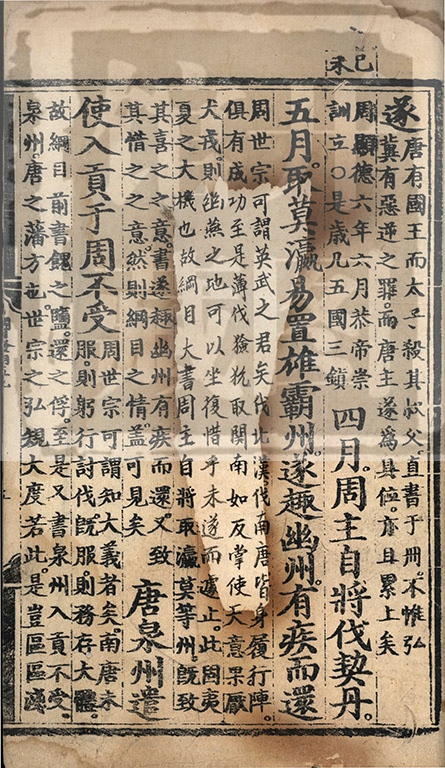 己未
遂唐有國王而太子殺其叔父直書于冊不惟弘
冀有惡逆之罪而唐主遂為具位亦且累上矣
周顯德六年六月恭帝崇
訓立○是歲凡五國三鎮
四月周主自將伐契丹
五月取莫瀛易置雄霸州遂趣幽州有疾而還
周世宗可謂英武之君矣伐北漢伐南唐皆身履行陣
俱有成功至是薄伐獫狁取関南如反掌使天意果厭
犬戎則幽燕之地可以坐復惜乎未遂而遽止此固夷
夏之大機也故綱目大書周主自將取瀛莫等州既致
其喜之之意書遂趣幽州有疾而還又致
其惜之之意然則綱目之情葢可見矣
唐泉州遣
使入貢于周不受
周世宗可謂知大義者矣南唐未
服則躬行討伐既服則務存大體
故綱目前書餽之鹽還之俘至是又書泉州入貢不受
泉州唐之藩方也世宗之弘規大度若此是豈區區淺